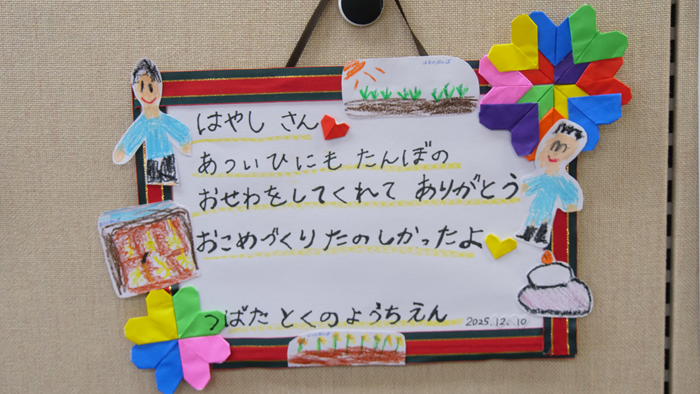 はやし さん
あついひにも たんぼの
おせわをしてくれて ありがとう
おこめづくり たのしかったよ
つばた とくのようちえん
2025.12.10